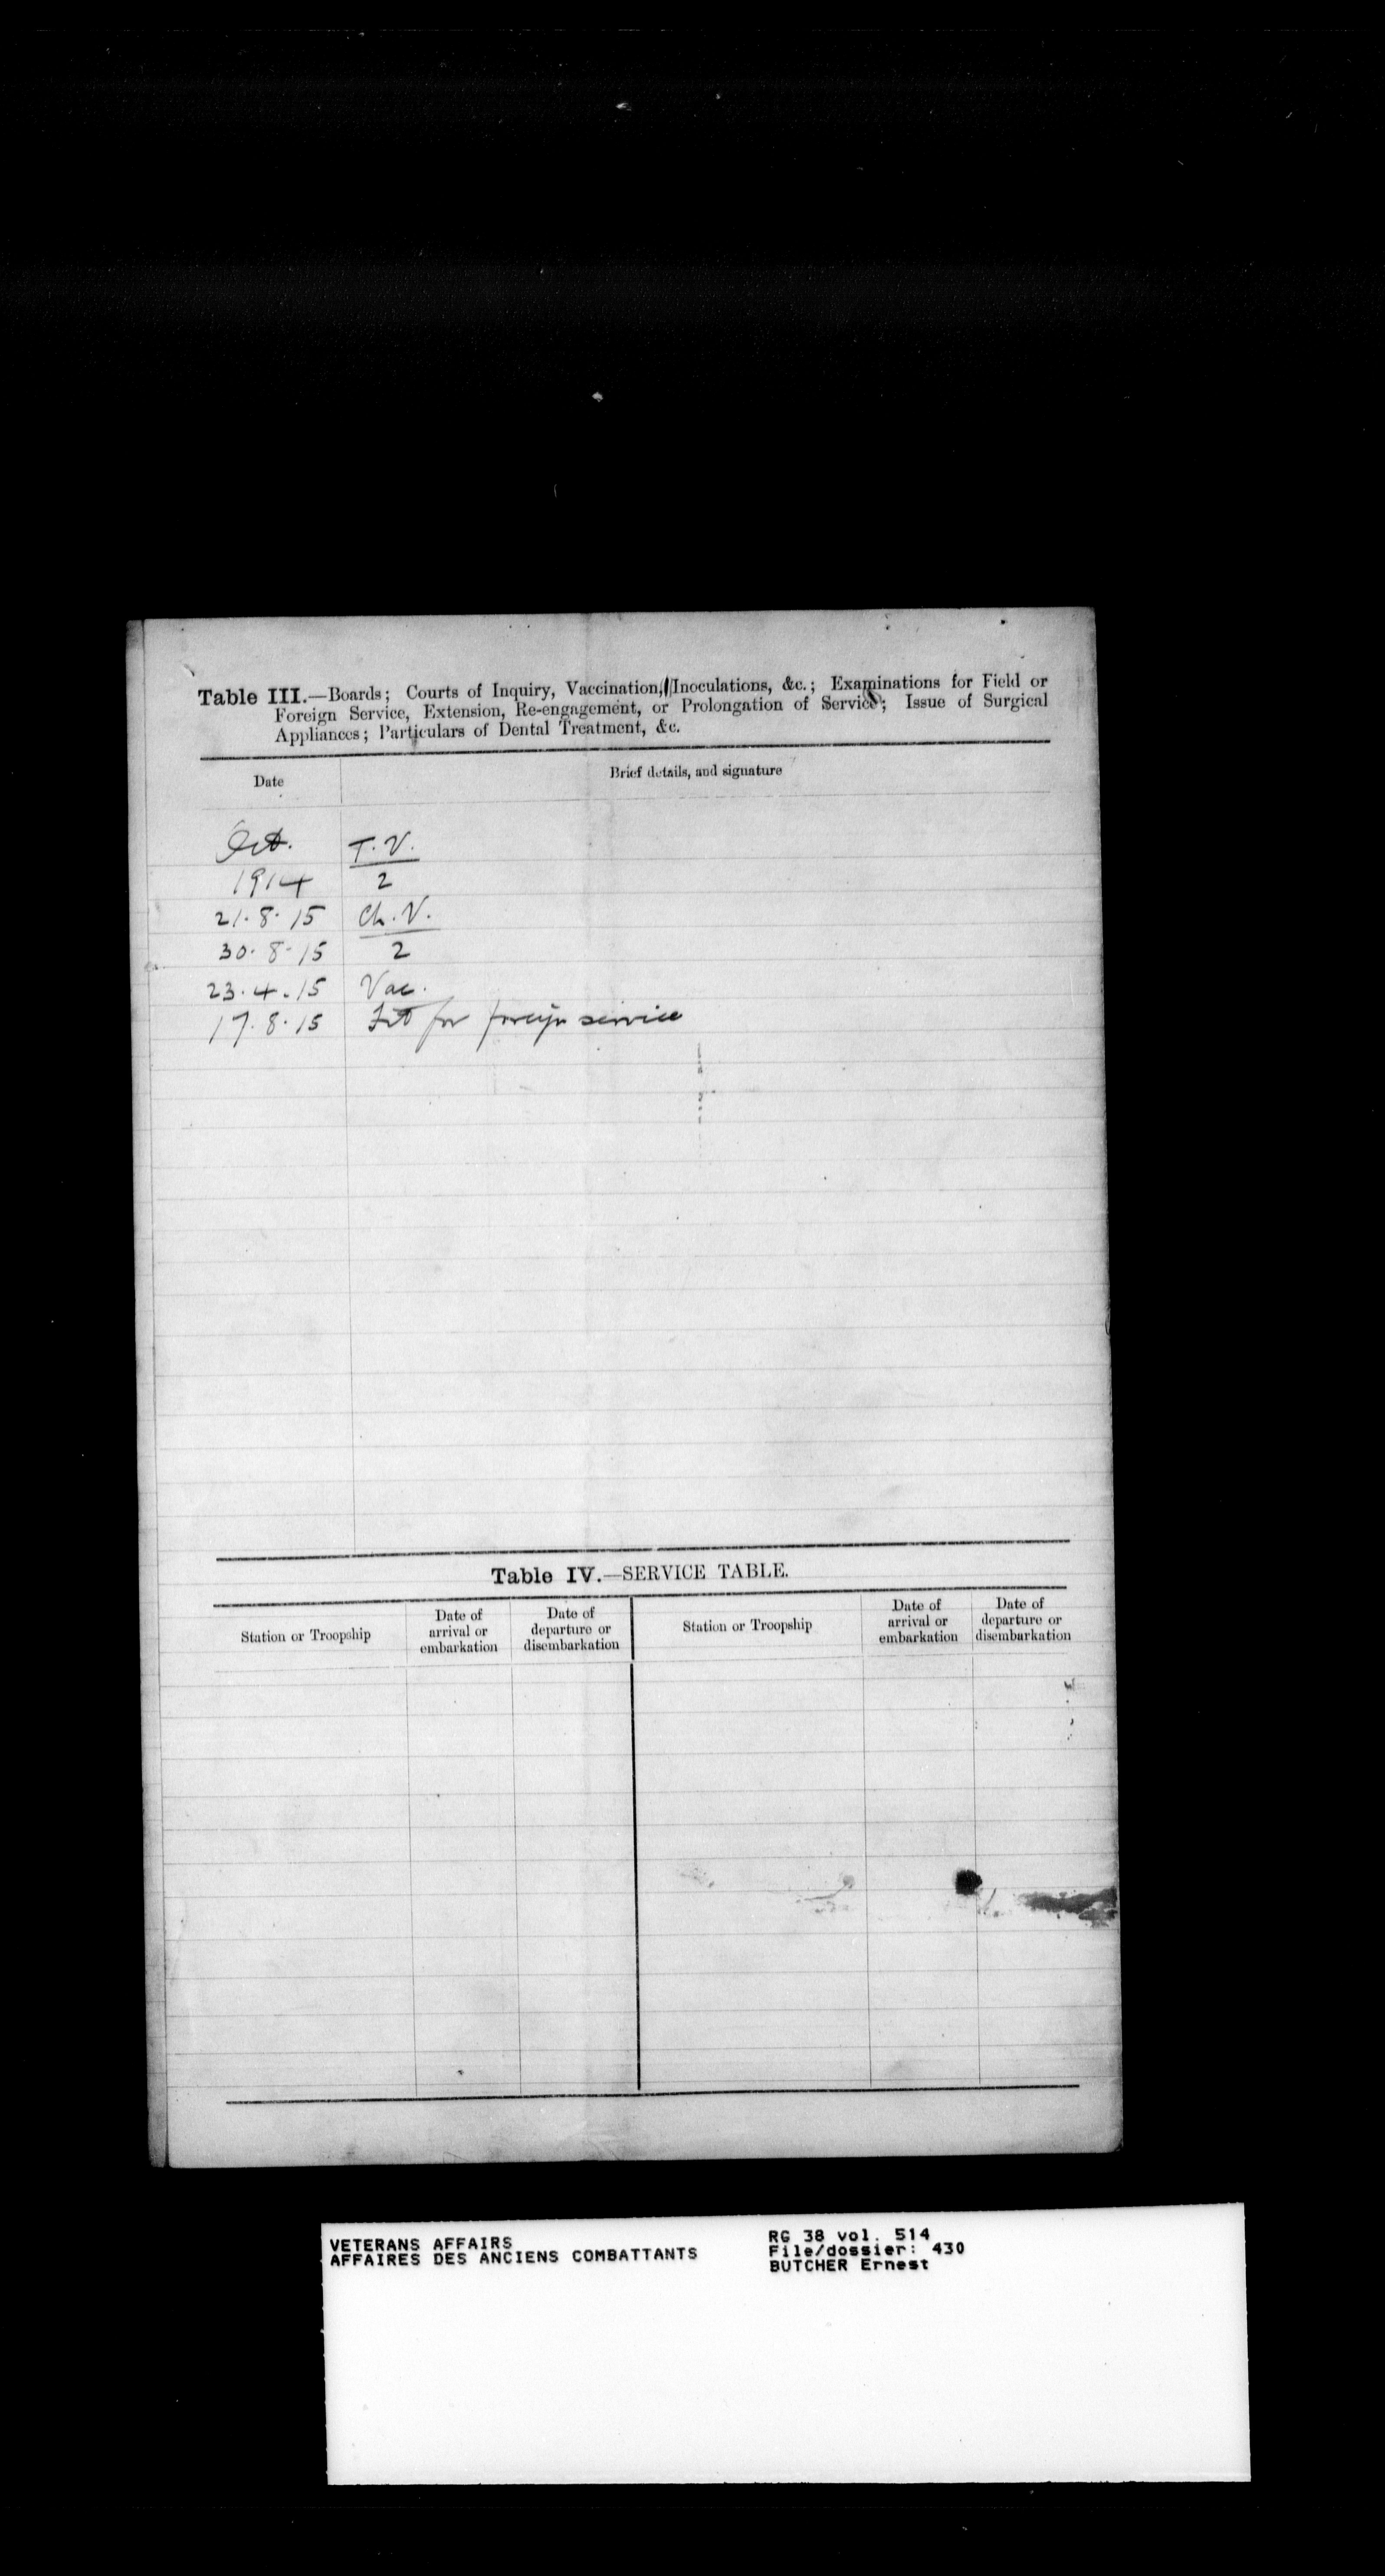 Table III.—Boards; Courts of Inquiry, Vaccination, Inoculations, &c.; Examinations for Field or
Foreign Service, Extension, Re-engagement, or Prolongation of Service; Issue of Surgical
Appliances; Particulars of Dental Treatment, &c.
Date
Brief details, and signature
Oct. T.V.
1914 2
21.8.15 Ch.V.
30.8.15 2
23.4.15 Vac.
17.8.15 Fit for foreign service
Table IV.—SERVICE TABLE.
Station or Troopship
Date of
arrival or
embarkation
Date of
departure or
disembarkation
Station or Troopship
Date of
arrival or
embarkation
Date of
departure or
disembarkation
VETERANS AFFAIRS
AFFAIRES DES ANCIENS COMBATTANTS
RG 38 vol. 514
File/dossier: 430
BUTCHER Ernest